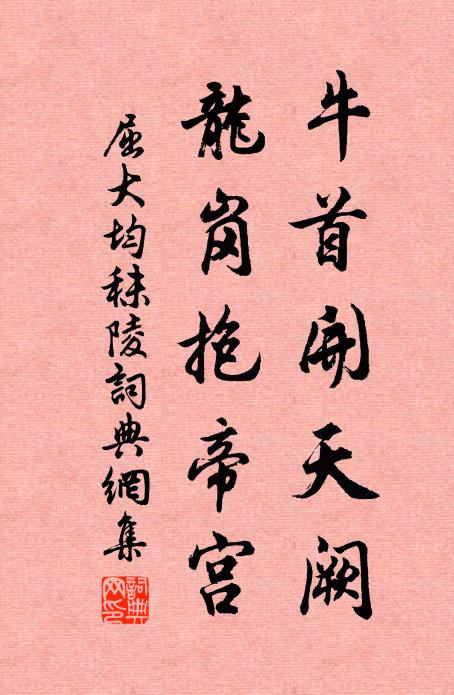 牛首開天闕
龍崗抱帝宮
屈大均秣陵詞典網集
詞典
网印